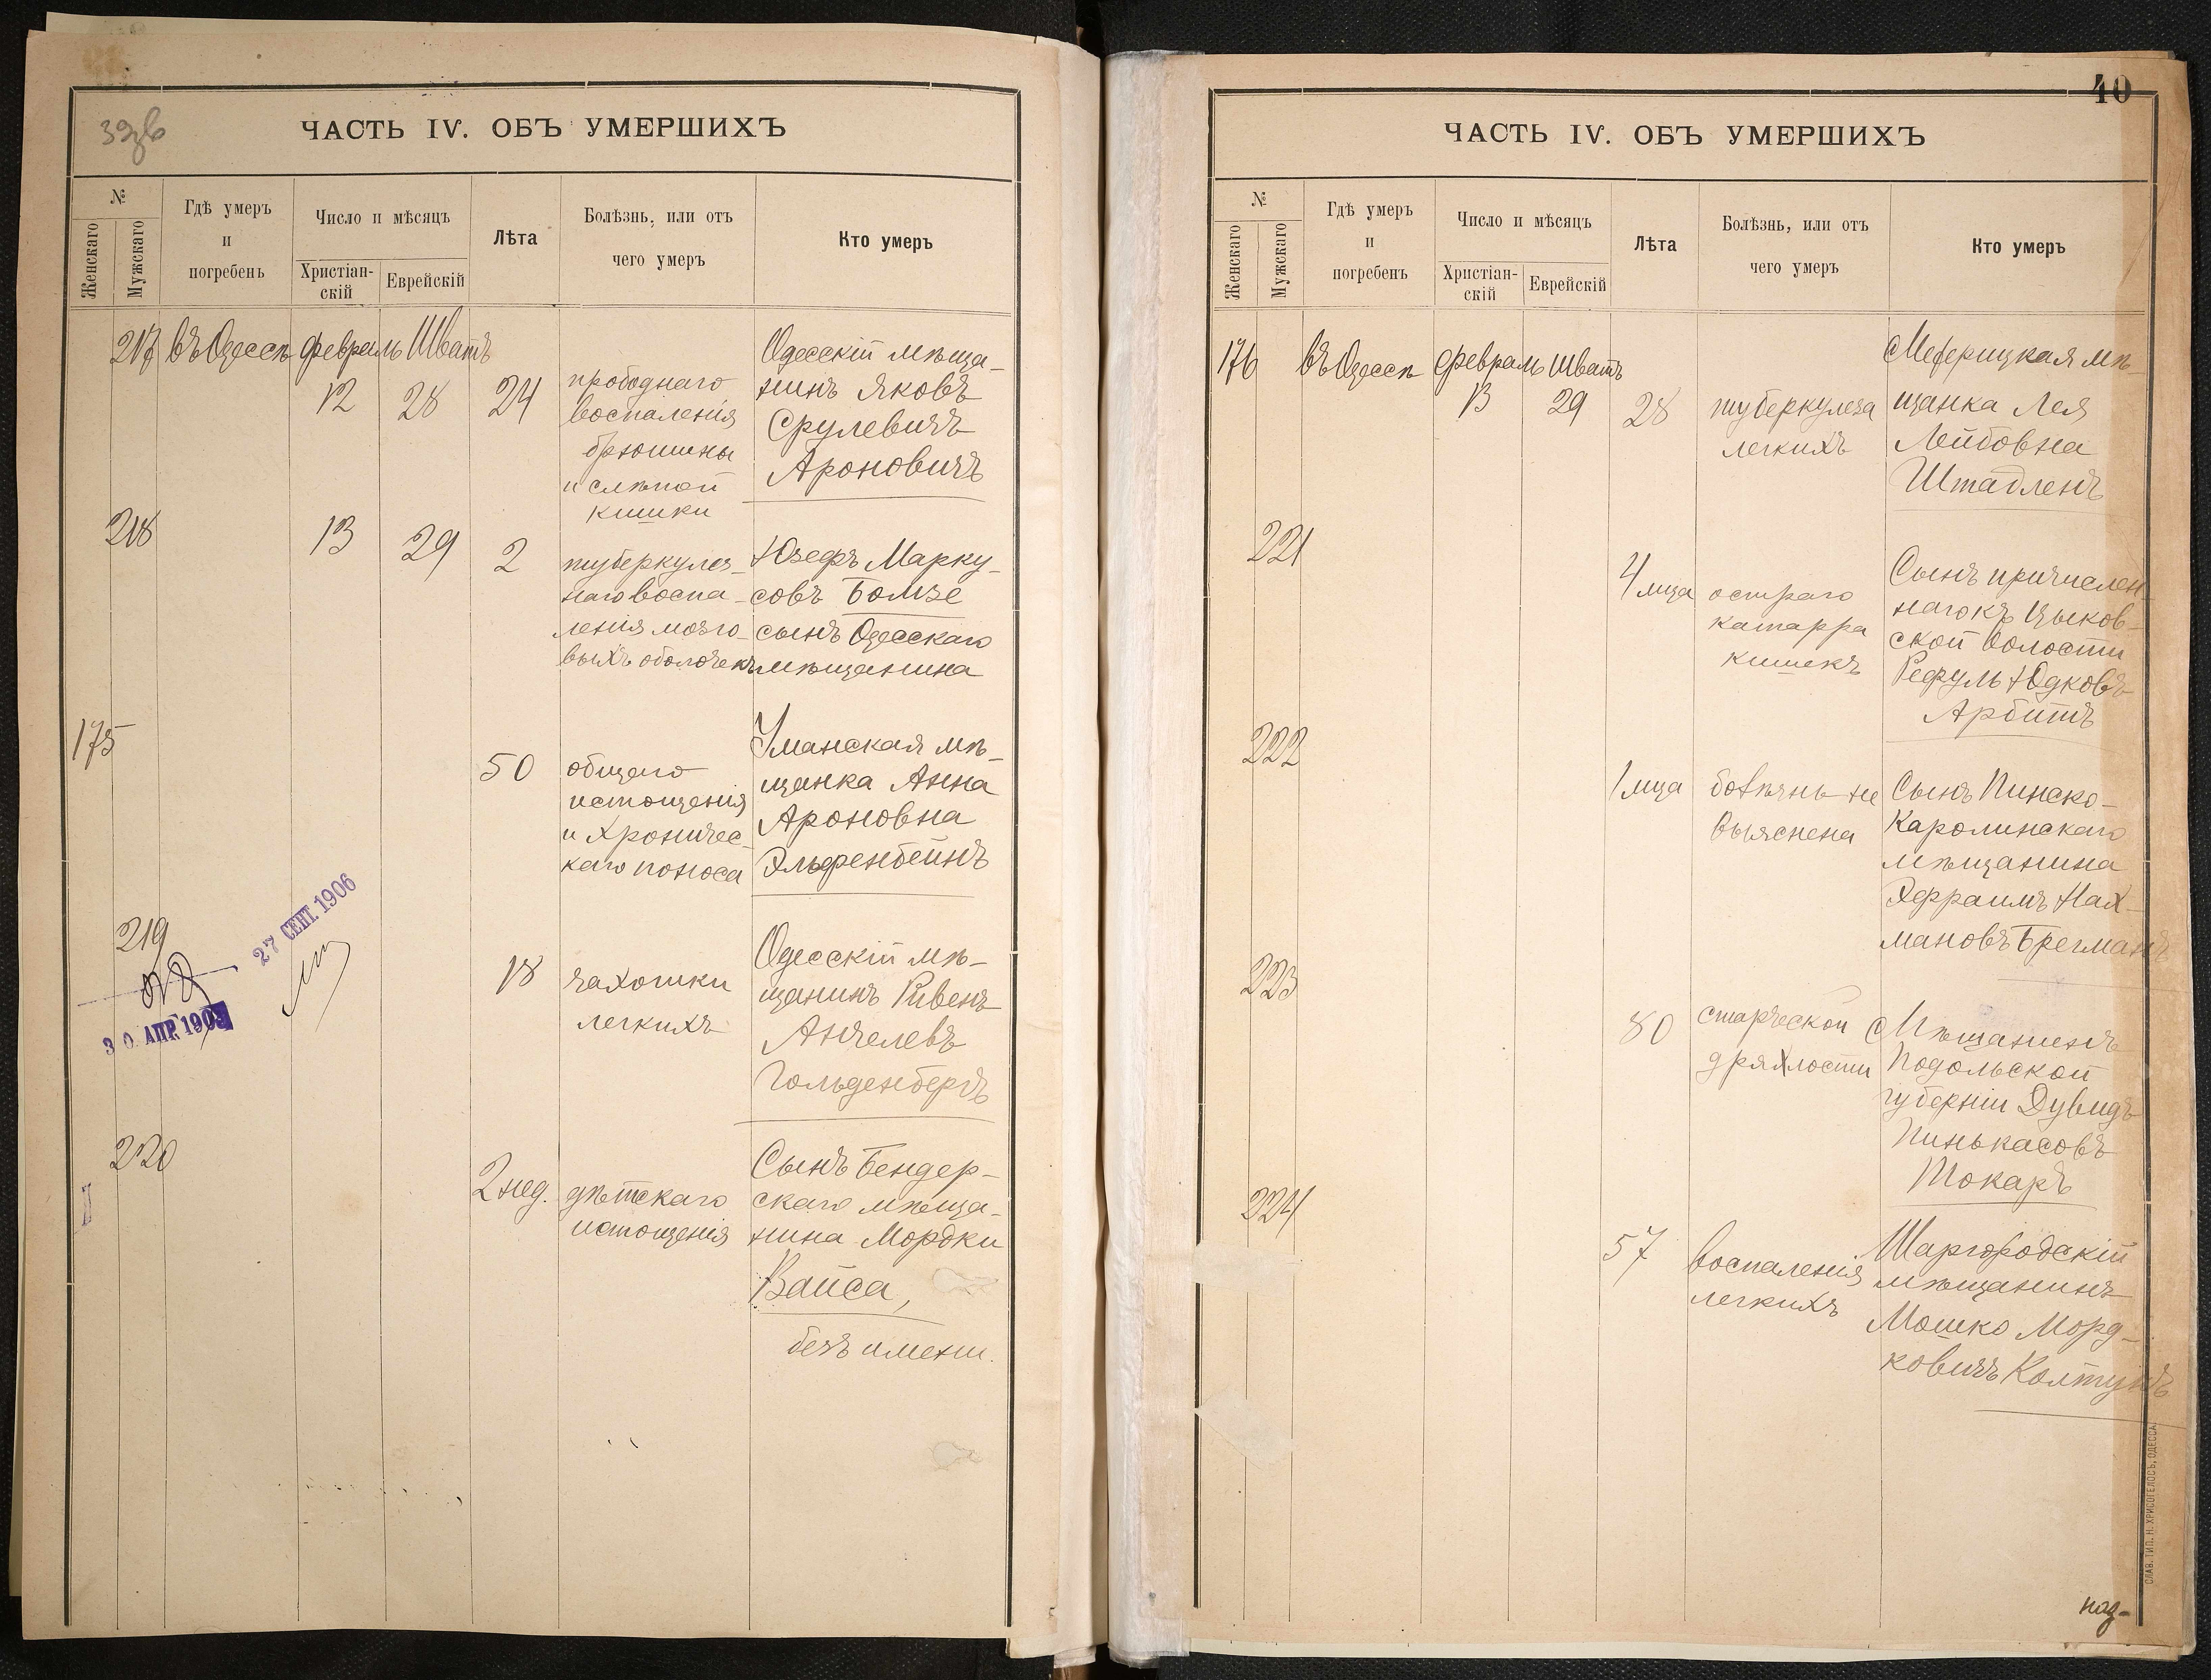 ЧАСТЬ IV. ОБЪ УМЕРШИХЪ
№
Женскаго
Мужскаго
Гдѣ умеръ
и
погребенъ
Число и мѣсяцъ
Христіан-
скій
Еврейскій
Лѣта
Болѣзнь, или отъ
чего умеръ
Кто умеръ
217 въ Одессѣ февраль Шватъ
12 28 24
прободнаго
воспаленія
брюшины
и слѣпой
кишки
Одесскій мѣща-
нинъ Яковъ
Срулевичъ
Ароновичъ
218 13 29 2
туберкулез-
наго воспа-
ленія мозго-
выхъ оболочекъ
Юзефъ Марку-
совъ Бомзе
сынъ Одесскаго
мѣщанина
175 50
общаго
истощенія
и хроничес-
каго поноса
Уманская мѣ-
щанка Анна
Ароновна
Эльфенбейнъ
219 18
чахотки
легкихъ
Одесскій мѣ-
щанинъ Ривенъ
Анчелевъ
Гольденбергъ
27 СЕНТ. 1906
30 АПР. 1909
220 2 нед.
дѣтскаго
истощенія
Сынъ Бендер-
скаго мѣща-
нина Мордки
Вайса,
безъ имени.
40
ЧАСТЬ IV. ОБЪ УМЕРШИХЪ
№
Женскаго
Мужскаго
Гдѣ умеръ
и
погребенъ
Число и мѣсяцъ
Христіан-
скій
Еврейскій
Лѣта
Болѣзнь, или отъ
чего умеръ
Кто умеръ
176 въ Одессѣ февраль Шватъ
13 29 28
туберкулеза
легкихъ
Межерицкая мѣ-
щанка Лея
Лейбовна
Штадленъ
221 4 мца
остраго
катарра
кишекъ
Сынъ причислен-
наго къ Цыков-
ской волости
Рефуль Юдковъ
Арбитъ
222 1 мца
болѣзнь не
выяснена
Сынъ Пинско-
Каролинскаго
мѣщанина
Эфраимъ Нах-
мановъ Брегманъ
223 80
старческой
дряхлости
Мѣщанинъ
Подольской
губерніи Дувидъ
Пинькасовъ
Токаръ
224 57
воспаленія
легкихъ
Шаргородскій
мѣщанинъ
Мошко Морд-
ковичъ Колтунъ
СЛАВ. ТИП. Н. ХРИСОГЕЛОСЪ, ОДЕССА.